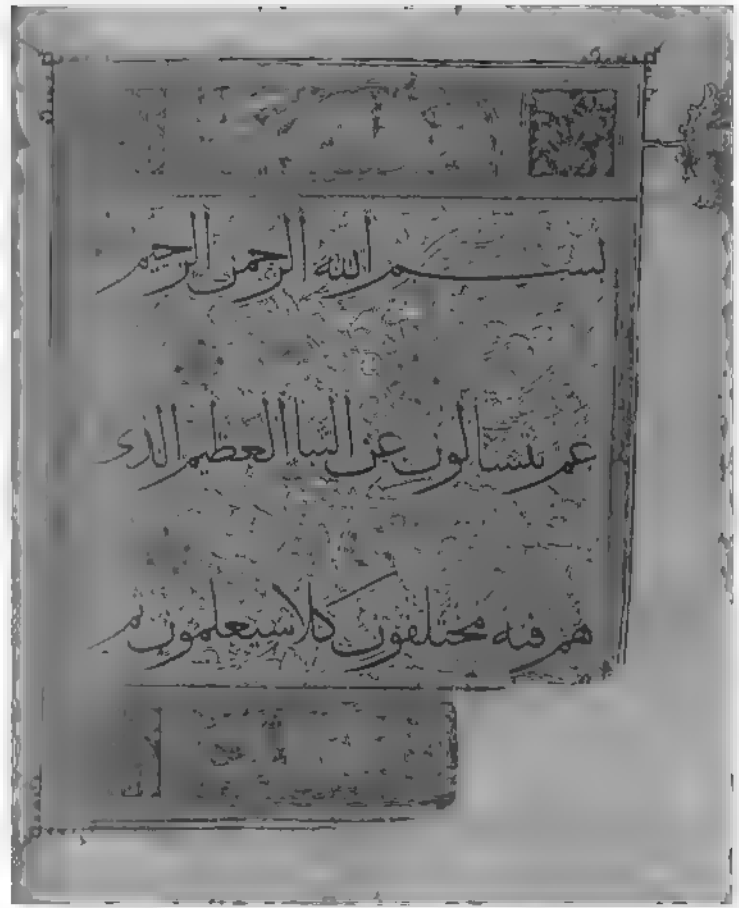 بسم الله الرحمن الرحيم
عم يتسالون عن النبا العظيم الذى
هم فيه مختلفون كلا سيعلمون ثم